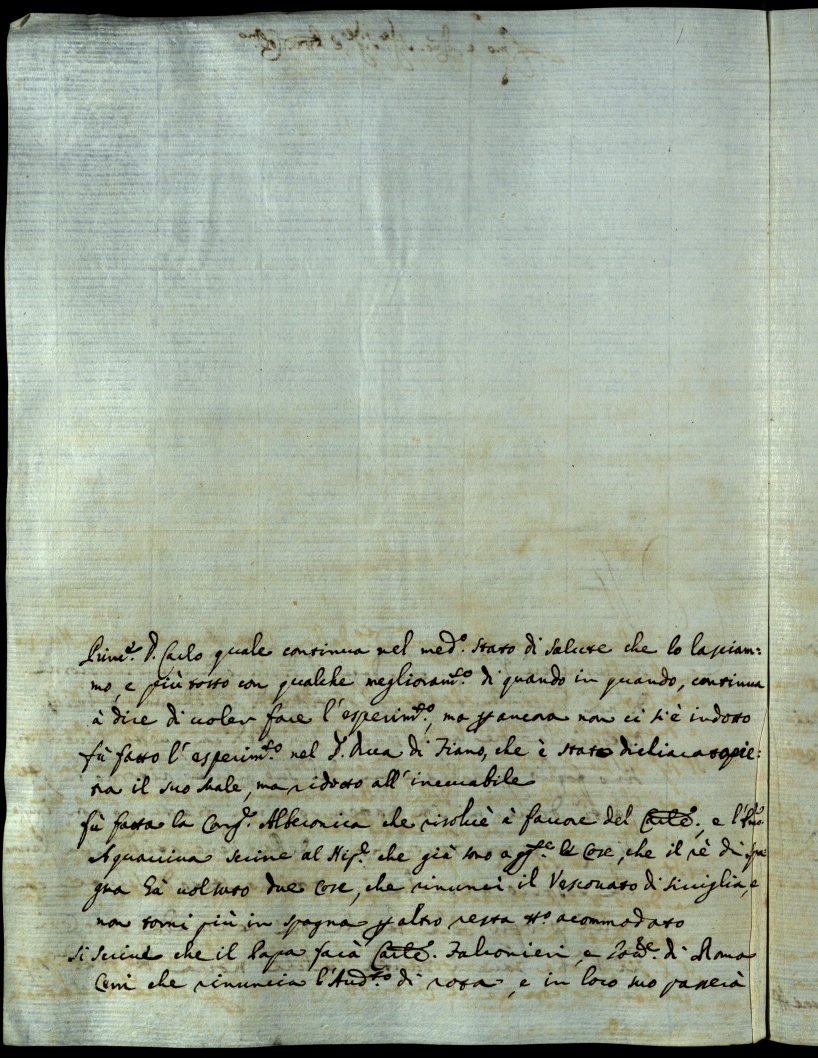 Princ.e D. Carlo quale continua nel med.o stato di salute che lo lasciam:
mo, e più tosto con qualche miglioram.to di quando in quando, continua
à dire di voler fare l'esperim.to, ma p ancora non ci si è indotto
fù fatto l'esperim.to nel D. Duca di Fiano, che è stato dichiarato pie:
tra il suo male, ma ridotto all'incurabile
fù fatta la Cong.e Alberonica che risolvè à favore del Card.e, e l'
Aquaviva scrive al Nip.e che già sono a le Cose, che il rè di Spa
gna hà voluto due Cose, che rinunci il Vescovato di Siviglia, e
non torni più in Spagna p altro resta tt.o acommodato
si scrive che il Papa farà Card.e Falconieri, e di Roma
Cerri che rinuncia l'Aud.to di rota, e in loco suo passerà